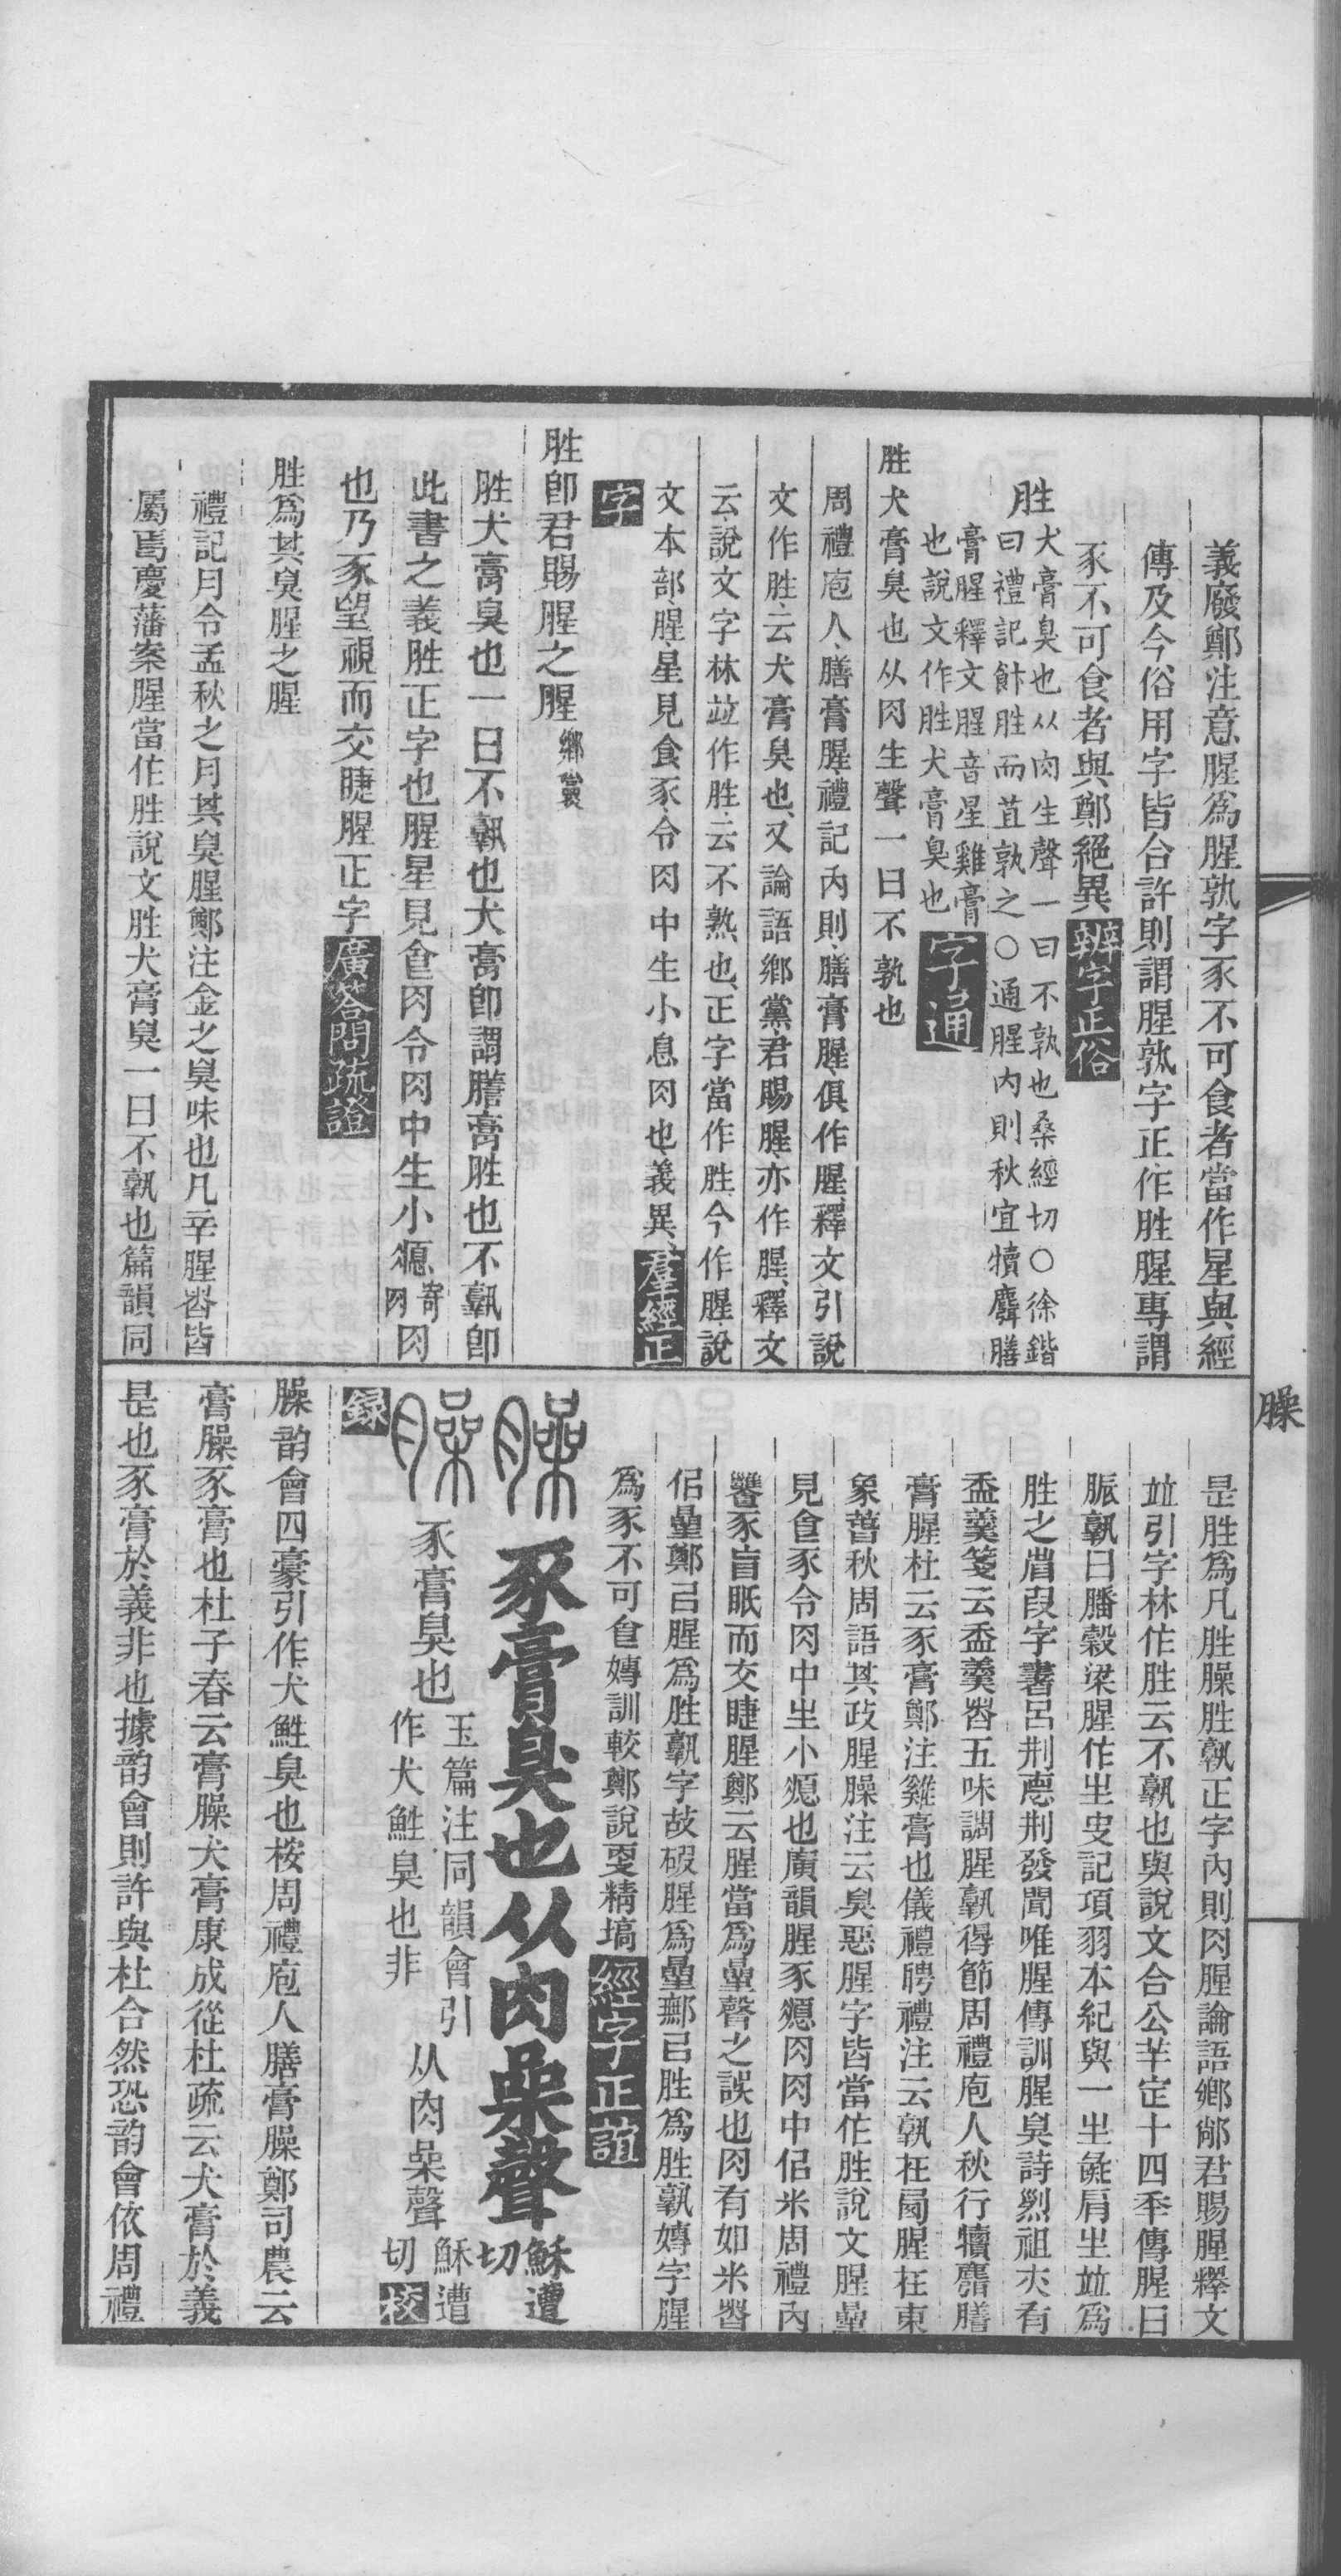 義廢鄭注意腥爲腥孰字豕不可食者當作星與經
傳及今俗用字皆合許則謂腥孰字正作胜腥專謂
豕不可食者與鄭絕異辨字正俗
胜犬膏臭也从肉生聲一曰不孰也桑經切○徐鍇
曰禮記飰胜而苴孰之○通腥内則秋宜犢麛膳
膏腥釋文腥音星雞膏
也說文作胜犬膏臭也字通
胜犬膏臭也从肉生聲一曰不孰也
周禮庖人膳膏腥禮記内則膳膏腥俱作腥釋文引說
文作胜云犬膏臭也又論語鄉黨君賜腥亦作腥釋文
云說文字林竝作胜云不熟也正字當作胜今作腥說
文本部腥星見食豕令肉中生小息肉也義異羣經正
字
胜卽君賜腥之腥鄉黨
胜犬膏臭也一曰不孰也犬膏卽謂膳膏胜也不孰卽
此書之義胜正字也腥星見食肉令肉中生小瘜寄肉肉
也乃豕望視而交睫腥正字廣答問疏證
胜爲其臭腥之腥
禮記月令孟秋之月其臭腥鄭注金之臭味也凡辛腥者皆
屬焉慶藩案腥當作胜說文胜犬膏臭一曰不孰也篇韻同
臊
是胜爲凡胜臊胜孰正字内則肉腥論語鄉鄺君賜腥釋文
竝引字林作胜云不孰也與說文合公羊定十四年傳腥曰
脤孰曰膰穀梁腥作生史記項羽本紀與一生彘肩生竝爲
胜之省叚字書呂刑悳刑發聞唯腥傳訓腥臭詩烈祖亦有
盉羹箋云盉羹者五味調腥孰得節周禮庖人秋行犢麛膳
膏腥杜云豕膏鄭注雞膏也儀禮聘禮注云孰在鼏腥在東
象萅秋周語其政腥臊注云臭惡腥字皆當作胜說文腥曐
見食豕令肉中生小瘜也廣韻腥豕瘜肉肉中侣米周禮内
饔豕盲眂而交睫腥鄭云腥當爲曐聲之誤也肉有如米者
侣曐鄭㠯腥爲胜孰字故破腥爲曐鄦㠯胜爲胜孰嫥字腥
爲豕不可食嫥訓較鄭說更精塙經字正誼
臊 豕膏臭也从肉喿聲穌遭切
臊 豕膏臭也玉篇注同韻會引作犬鮏臭也非从肉喿聲穌遭切校
錄
臊韵會四豪引作犬鮏臭也桉周禮庖人膳膏臊鄭司農云
膏臊豕膏也杜子春云膏臊犬膏康成從杜疏云犬膏於義
是也豕膏於義非也據韵會則許與杜合然恐韵會依周禮